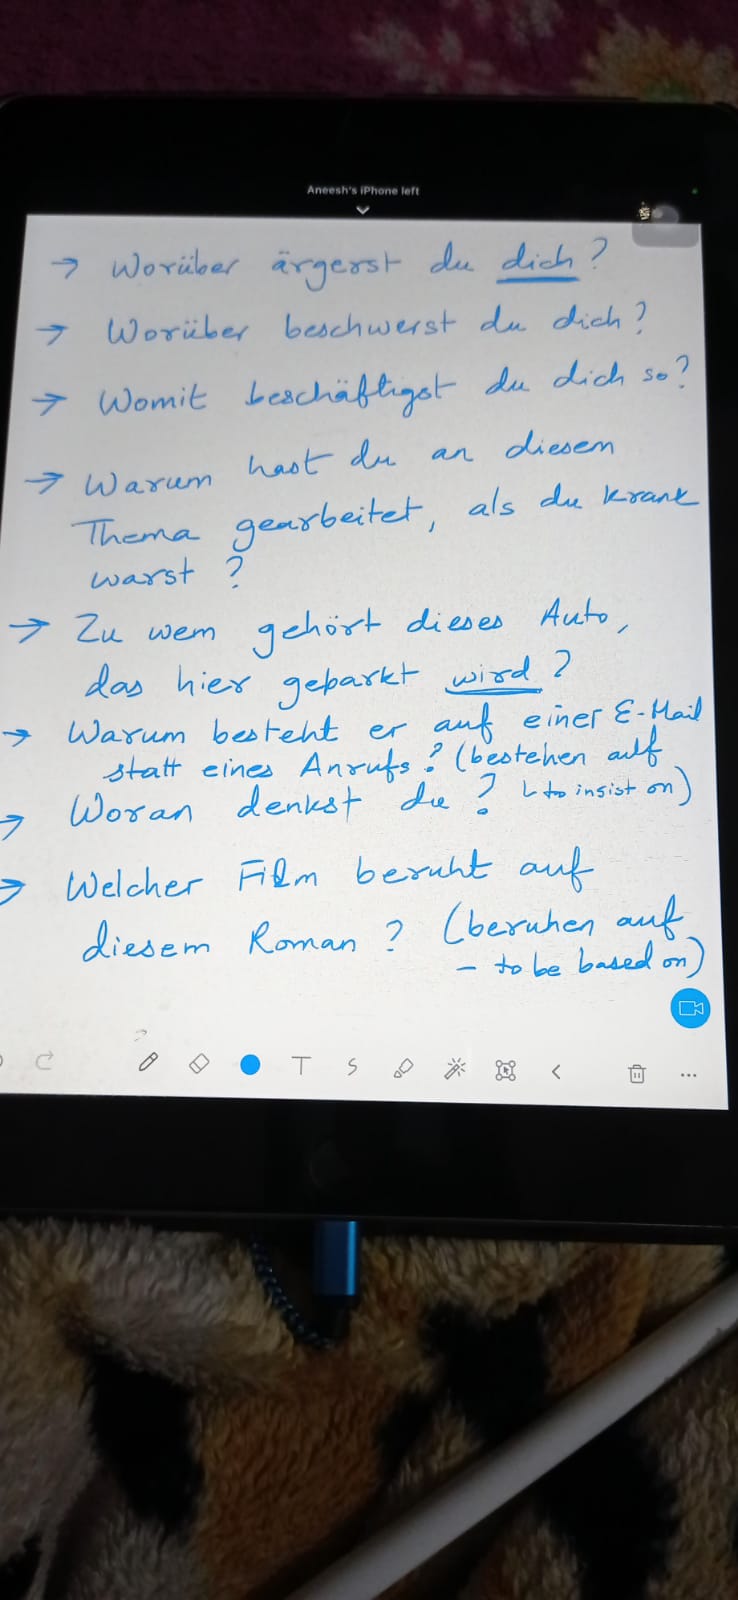 Aneesh's iPhone left
→ Worüber ärgerst du dich?
→ Worüber beschwerst du dich?
→ Womit beschäftigst du dich so?
→ Warum hast du an diesem
Thema gearbeitet, als du krank
warst ?
→ Zu wem gehört dieses Auto,
das hier geparkt wird ?
→ Warum besteht er auf einer E-Mail
statt eines Anrufs? (bestehen auf
→ Woran denkst du ? ↳ to insist on)
→ Welcher Film beruht auf
diesem Roman ? (beruhen auf
- to be based on)
T